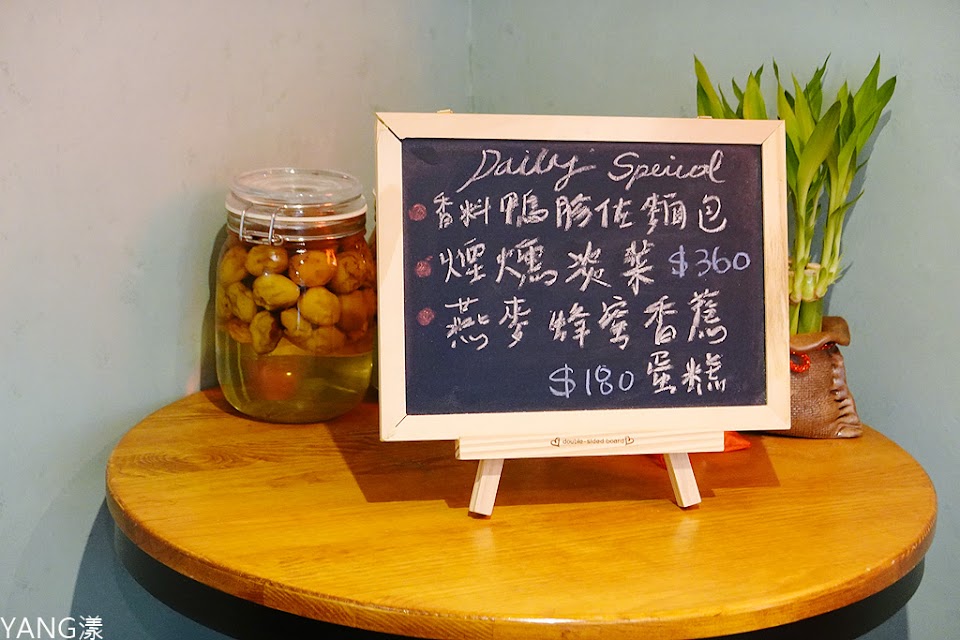 Daily Speical
香料鴨胗佐麵包
煙燻淡菜 $360
燕麥蜂蜜香蕉
$180 蛋糕
double-sided board
YANG漾